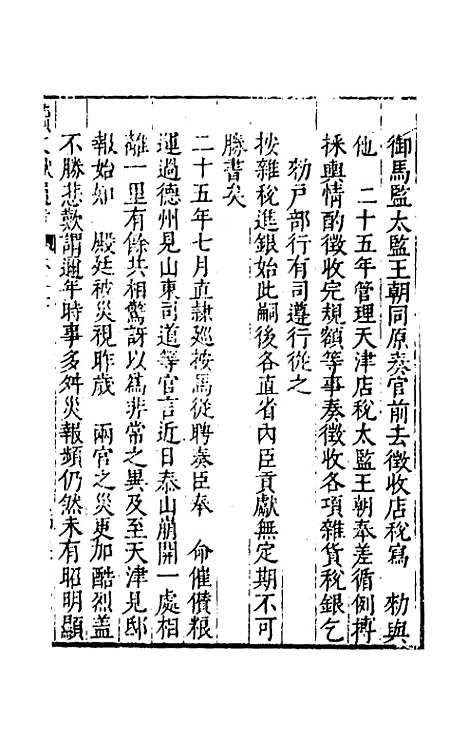 御馬監太監王朝同原奏官前去徵收店稅寫 勑與
他 二十五年管理天津店稅太監王朝奉差循例摶
採輿情酌徵收完規額等事奏徵收各項雜貨稅銀乞
勑戶部行有司遵行從之
按雜稅進銀始此嗣後各直省內臣貢獻無定期不可
勝書矣
二十五年七月直隸廵按馬從聘奏臣奉 命催儹粮
運過德州見山東司道等官言近日泰山崩開一處相
離一里有餘共相驚訝以爲非常之異及至天津見邸
報始知 殿廷被災視昨歲 兩宫之災更加酷烈蓋
不勝悲歎謂邇年時事多舛災報頻仍然未有昭明顯